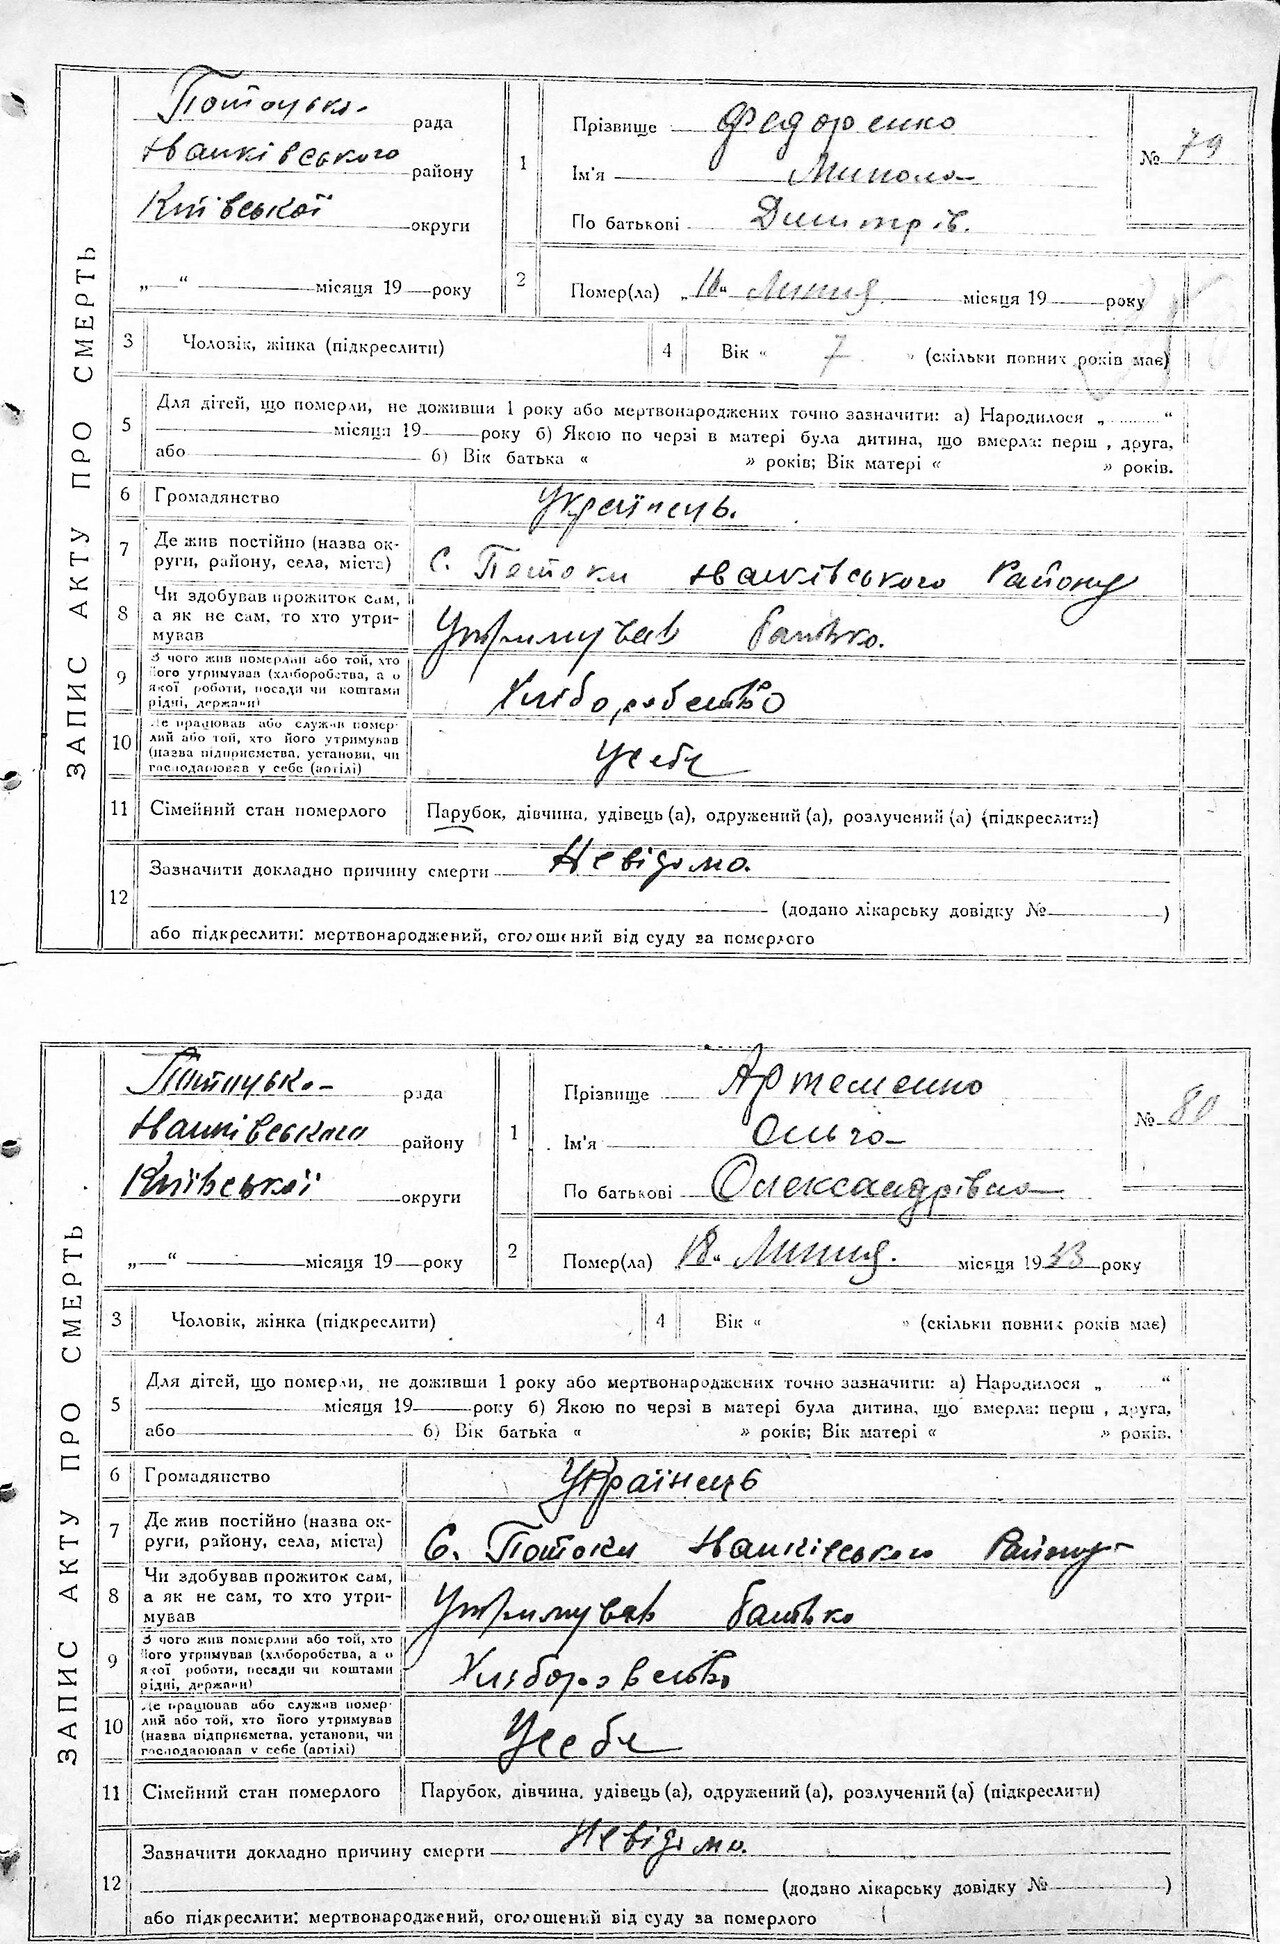 ЗАПИС АКТУ ПРО СМЕРТЬ
Потоцька рада
Іванківського району
Київської округи
„—“ ——— місяця 19 —— року
1
Прізвище Федоренко
Ім'я Микола
По батькові Дмитрів.
№ 79
2
Помер(ла) „16“ Липня місяця 19 —— року
3 Чоловік, жінка (підкреслити)
4 Вік « 7 » (скільки повних років має)
5
Для дітей, що померли, не доживши 1 року або мертвонароджених точно зазначити: а) Народилося „ ........ “
——— місяця 19 —— року б) Якою по черзі в матері була дитина, що вмерла: перш , друга,
або ——— б) Вік батька « » років; Вік матері « » років.
6 Громадянство Українець.
7 Де жив постійно (назва ок-
руги, району, села, міста) С. Потоки Іванківського Району
8 Чи здобував прожиток сам,
а як не сам, то хто утри-
мував Утримував батько.
9 З чого жив померлий або той, хто
його утримував (хліборобства, а о
якої роботи, посади чи коштами
рідні, держави) Хліборобство
10 Де працював або служив помер-
лий або той, хто його утримував
(назва підприємства, установи, чи
господарював у себе (артілі) У себе
11 Сімейний стан померлого Парубок, дівчина, удівець (а), одружений (а), розлучений (а) (підкреслити)
12
Зазначити докладно причину смерти Невідомо.
(додано лікарську довідку № ——— )
або підкреслити: мертвонароджений, оголошений від суду за померлого
ЗАПИС АКТУ ПРО СМЕРТЬ
Потоцька рада
Іванківського району
Київської округи
„—“ ——— місяця 19 —— року
1
Прізвище Артеменко
Ім'я Ольга
По батькові Олександрівна
№ 80
2
Помер(ла) 18“ Липня. місяця 1933 року
3 Чоловік, жінка (підкреслити)
4 Вік « » (скільки повних років має)
5
Для дітей, що померли, не доживши 1 року або мертвонароджених точно зазначити: а) Народилося „ ........ “
——— місяця 19 —— року б) Якою по черзі в матері була дитина, що вмерла: перш , друга,
або ——— б) Вік батька « » років; Вік матері « » років.
6 Громадянство Українець
7 Де жив постійно (назва ок-
руги, району, села, міста) С. Потоки Іванківського Району
8 Чи здобував прожиток сам,
а як не сам, то хто утри-
мував Утримував батько
9 З чого жив померлий або той, хто
його утримував (хліборобства, а о
якої роботи, посади чи коштами
рідні, держави)
10 Де працював або служив помер-
лий або той, хто його утримував
(назва підприємства, установи, чи
господарював у себе (артілі) У себе
11 Сімейний стан померлого Парубок, дівчина, удівець (а), одружений (а), розлучений (а) (підкреслити)
12
Зазначити докладно причину смерти Невідомо.
(додано лікарську довідку № ——— )
або підкреслити: мертвонароджений, оголошений від суду за померлого